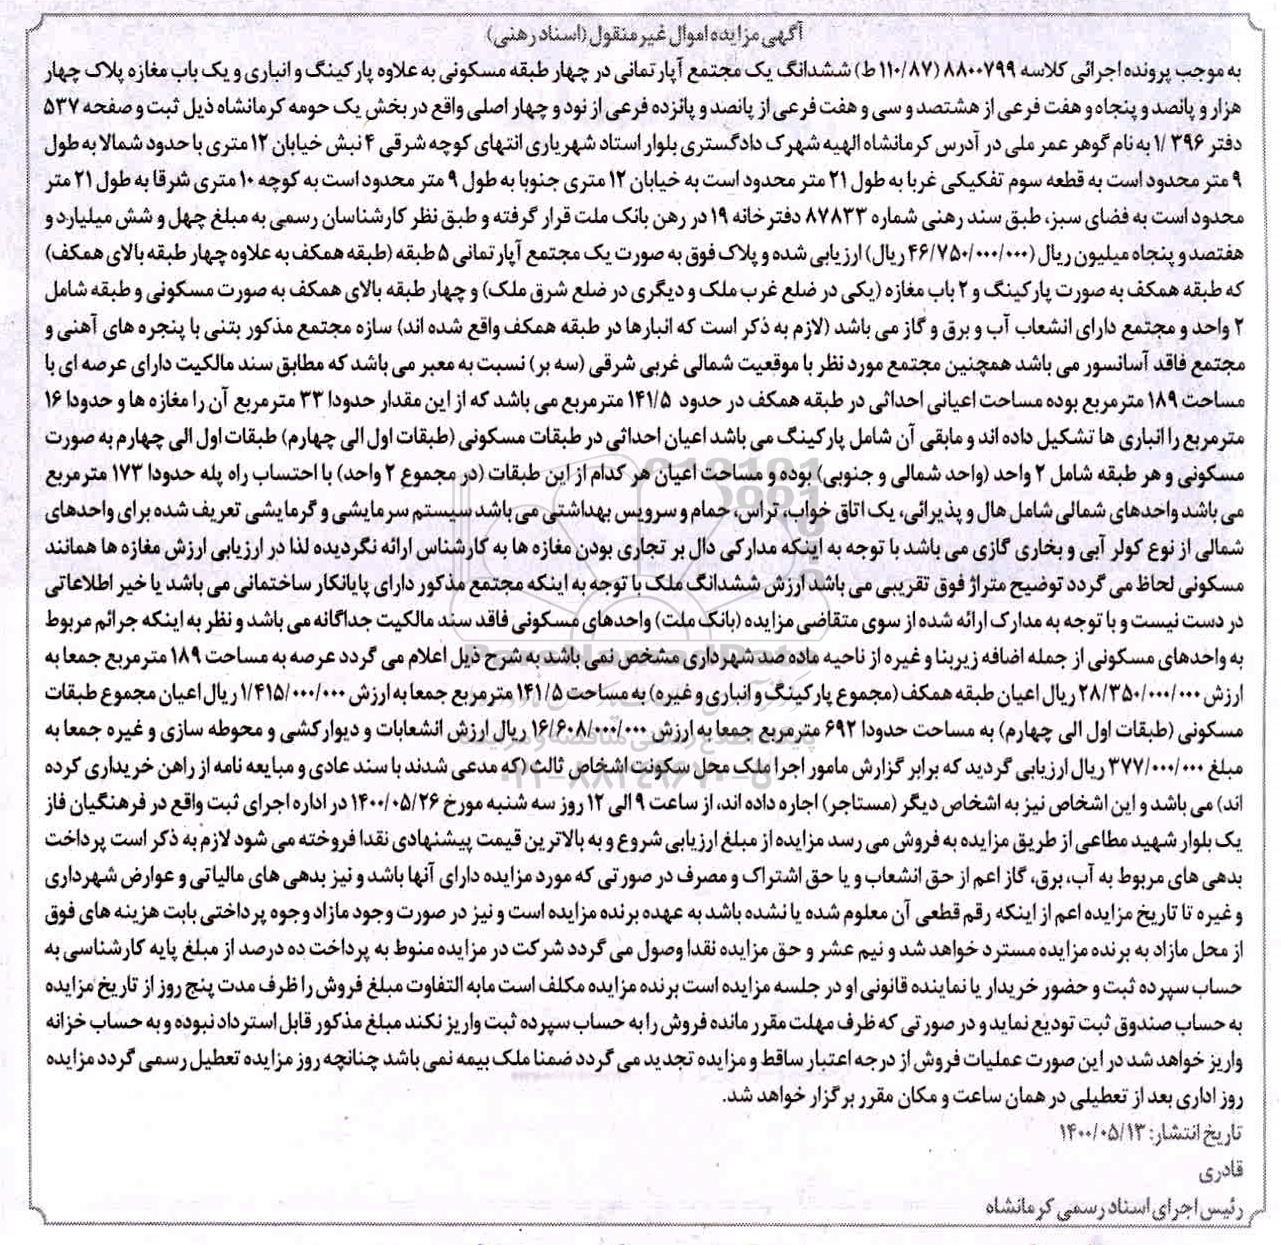 آگهی مزایده اموال غیر منقول (اسناد رهنی)
به موجب پرونده اجرائی کلاسه ۸۸۰۰۷۹۹ (۱۱۰/۸۷ ط) ششدانگ یک مجتمع آپارتمانی در چهار طبقه مسکونی به علاوه پارکینگ و انباری و یک باب مغازه پلاک چهار
هزار و پانصد و پنجاه و هفت فرعی از هشتصد و سی و هفت فرعی از پانصد و پانزده فرعی از نود و چهار اصلی واقع در بخش یک حومه کرمانشاه ذیل ثبت و صفحه ۵۳۷
دفتر ۳۹۶ /۱ به نام گوهر عمر ملی در آدرس کرمانشاه الهیه شهرک دادگستری بلوار استاد شهریاری انتهای کوچه شرقی ۴ نبش خیابان ۱۲ متری با حدود شمالا به طول
۹ متر محدود است به قطعه سوم تفکیکی غربا به طول ۲۱ متر محدود است به خیابان ۱۲ متری جنوبا به طول ۹ متر محدود است به کوچه ۱۰ متری شرقا به طول ۲۱ متر
محدود است به فضای سبز، طبق سند رهنی شماره ۸۷۸۳۳ دفترخانه ۱۹ در رهن بانک ملت قرار گرفته و طبق نظر کارشناسان رسمی به مبلغ چهل و شش میلیارد و
هفتصد و پنجاه میلیون ریال (۴۶/۷۵۰/۰۰۰/۰۰۰ ریال) ارزیابی شده و پلاک فوق به صورت یک مجتمع آپارتمانی ۵ طبقه (طبقه همکف به علاوه چهار طبقه بالای همکف)
که طبقه همکف به صورت پارکینگ و ۲ باب مغازه (یکی در ضلع غرب ملک و دیگری در ضلع شرق ملک) و چهار طبقه بالای همکف به صورت مسکونی و طبقه شامل
۲ واحد و مجتمع دارای انشعاب آب و برق و گاز می باشد (لازم به ذکر است که انبارها در طبقه همکف واقع شده اند) سازه مجتمع مذکور بتنی با پنجره های آهنی و
مجتمع فاقد آسانسور می باشد همچنین مجتمع مورد نظر با موقعیت شمالی غربی شرقی (سه بر) نسبت به معبر می باشد که مطابق سند مالکیت دارای عرصه ای با
مساحت ۱۸۹ مترمربع بوده مساحت اعیانی احداثی در طبقه همکف در حدود ۱۴۱/۵ مترمربع می باشد که از این مقدار حدودا ۳۳ مترمربع آن را مغازه ها و حدودا ۱۶
مترمربع را انباری ها تشکیل داده اند و مابقی آن شامل پارکینگ می باشد اعیان احداثی در طبقات مسکونی (طبقات اول الی چهارم) طبقات اول الی چهارم به صورت
مسکونی و هر طبقه شامل ۲ واحد (واحد شمالی و جنوبی) بوده و مساحت اعیان هر کدام از این طبقات (در مجموع ۲ واحد) با احتساب راه پله حدودا ۱۷۳ مترمربع
می باشد واحدهای شمالی شامل هال و پذیرائی، یک اتاق خواب، تراس، حمام و سرویس بهداشتی می باشد سیستم سرمایشی و گرمایشی تعریف شده برای واحدهای
شمالی از نوع کولر آبی و بخاری گازی می باشد با توجه به اینکه مدارکی دال بر تجاری بودن مغازه ها به کارشناس ارائه نگردیده لذا در ارزیابی ارزش مغازه ها همانند
مسکونی لحاظ می گردد توضیح متراژ فوق تقریبی می باشد ارزش ششدانگ ملک با توجه به اینکه مجتمع مذکور دارای پایانکار ساختمانی می باشد یا خیر اطلاعاتی
در دست نیست و با توجه به مدارک ارائه شده از سوی متقاضی مزایده (بانک ملت) واحدهای مسکونی فاقد سند مالکیت جداگانه می باشد و نظر به اینکه جرائم مربوط
به واحدهای مسکونی از جمله اضافه زیربنا و غیره از ناحیه ماده صد شهرداری مشخص نمی باشد به شرح ذیل اعلام می گردد عرصه به مساحت ۱۸۹ مترمربع جمعا به
ارزش ۲۸/۳۵۰/۰۰۰/۰۰۰ ریال اعیان طبقه همکف (مجموع پارکینگ و انباری و غیره) به مساحت ۱۴۱/۵ مترمربع جمعا به ارزش ۱/۴۱۵/۰۰۰/۰۰۰ ریال اعیان مجموع طبقات
مسکونی (طبقات اول الی چهارم) به مساحت حدودا ۶۹۲ مترمربع جمعا به ارزش ۱۶/۶۰۸/۰۰۰/۰۰۰ ریال ارزش انشعابات و دیوارکشی و محوطه سازی و غیره جمعا به
مبلغ ۳۷۷/۰۰۰/۰۰۰ ریال ارزیابی گردید که برابر گزارش مامور اجرا ملک محل سکونت اشخاص ثالث (که مدعی شدند با سند عادی و مبایعه نامه از راهن خریداری کرده
اند) می باشد و این اشخاص نیز به اشخاص دیگر (مستاجر) اجاره داده اند، از ساعت ۹ الی ۱۲ روز سه شنبه مورخ ۱۴۰۰/۰۵/۲۶ در اداره اجرای ثبت واقع در فرهنگیان فاز
یک بلوار شهید مطاعی از طریق مزایده به فروش می رسد مزایده از مبلغ ارزیابی شروع و به بالاترین قیمت پیشنهادی نقدا فروخته می شود لازم به ذکر است پرداخت
بدهی های مربوط به آب، برق، گاز اعم از حق انشعاب و یا حق اشتراک و مصرف در صورتی که مورد مزایده دارای آنها باشد و نیز بدهی های مالیاتی و عوارض شهرداری
و غیره تا تاریخ مزایده اعم از اینکه رقم قطعی آن معلوم شده یا نشده باشد به عهده برنده مزایده است و نیز در صورت وجود مازاد وجوه پرداختی بابت هزینه های فوق
از محل مازاد به برنده مزایده مسترد خواهد شد و نیم عشر و حق مزایده نقدا وصول می گردد شرکت در مزایده منوط به پرداخت ده درصد از مبلغ پایه کارشناسی به
حساب سپرده ثبت و حضور خریدار یا نماینده قانونی او در جلسه مزایده است برنده مزایده مکلف است مابه التفاوت مبلغ فروش را ظرف مدت پنج روز از تاریخ مزایده
به حساب صندوق ثبت تودیع نماید و در صورتی که ظرف مهلت مقرر مانده فروش را به حساب سپرده ثبت واریز نکند مبلغ مذکور قابل استرداد نبوده و به حساب خزانه
واریز خواهد شد در این صورت عملیات فروش از درجه اعتبار ساقط و مزایده تجدید می گردد ضمنا ملک بیمه نمی باشد چنانچه روز مزایده تعطیل رسمی گردد مزایده
روز اداری بعد از تعطیلی در همان ساعت و مکان مقرر برگزار خواهد شد.
تاریخ انتشار: ۱۴۰۰/۰۵/۱۳
قادری
رئیس اجرای اسناد رسمی کرمانشاه